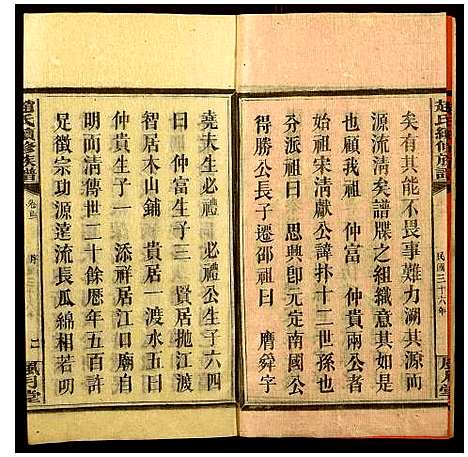 趙氏續修族譜
民國三十六年
風月堂
矣有其能不畏事難力溯其源而
源流清矣譜牒之組織意其如是
也顧我祖 仲富 仲貴兩公者
始祖宋清獻公諱抃十二世孫曰
分派祖曰 思興卽元定南國公
得勝公長子遷邵祖曰 膺舜字
堯夫生必禮 必禮公生子六四
曰 仲富生子三 賢居拋江渡
智居木山鋪 貴居一渡水五曰
仲貴生子一 添祥居江口廟自
明而淸傳世二十餘歷年五百許
足徵宗功源遠流長瓜綿相若明
趙氏續修族譜
卷三
序
二
風月堂